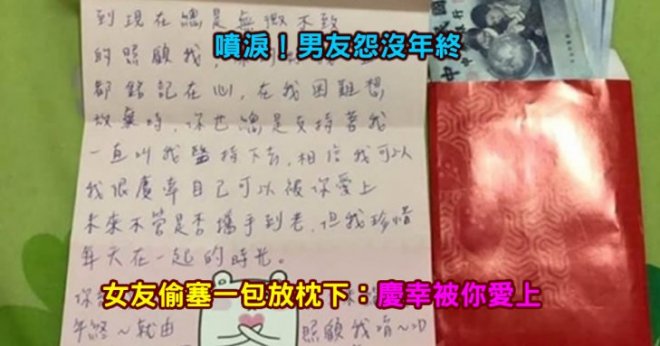 到現在總是無微不致
的照顧我,
噴淚！男友怨沒年終
都銘記在心,在我困難想
放棄時,你也總是支持著我
一直叫我堅持下去,相信我可以
我很慶幸自己可以被你愛上
未來不管是否攜手到老,但我珍惜
每天在一起的時光。
女友偷塞一包放枕下：慶幸被你愛上
年終～就由
照顧我唷～:D
國
行
中